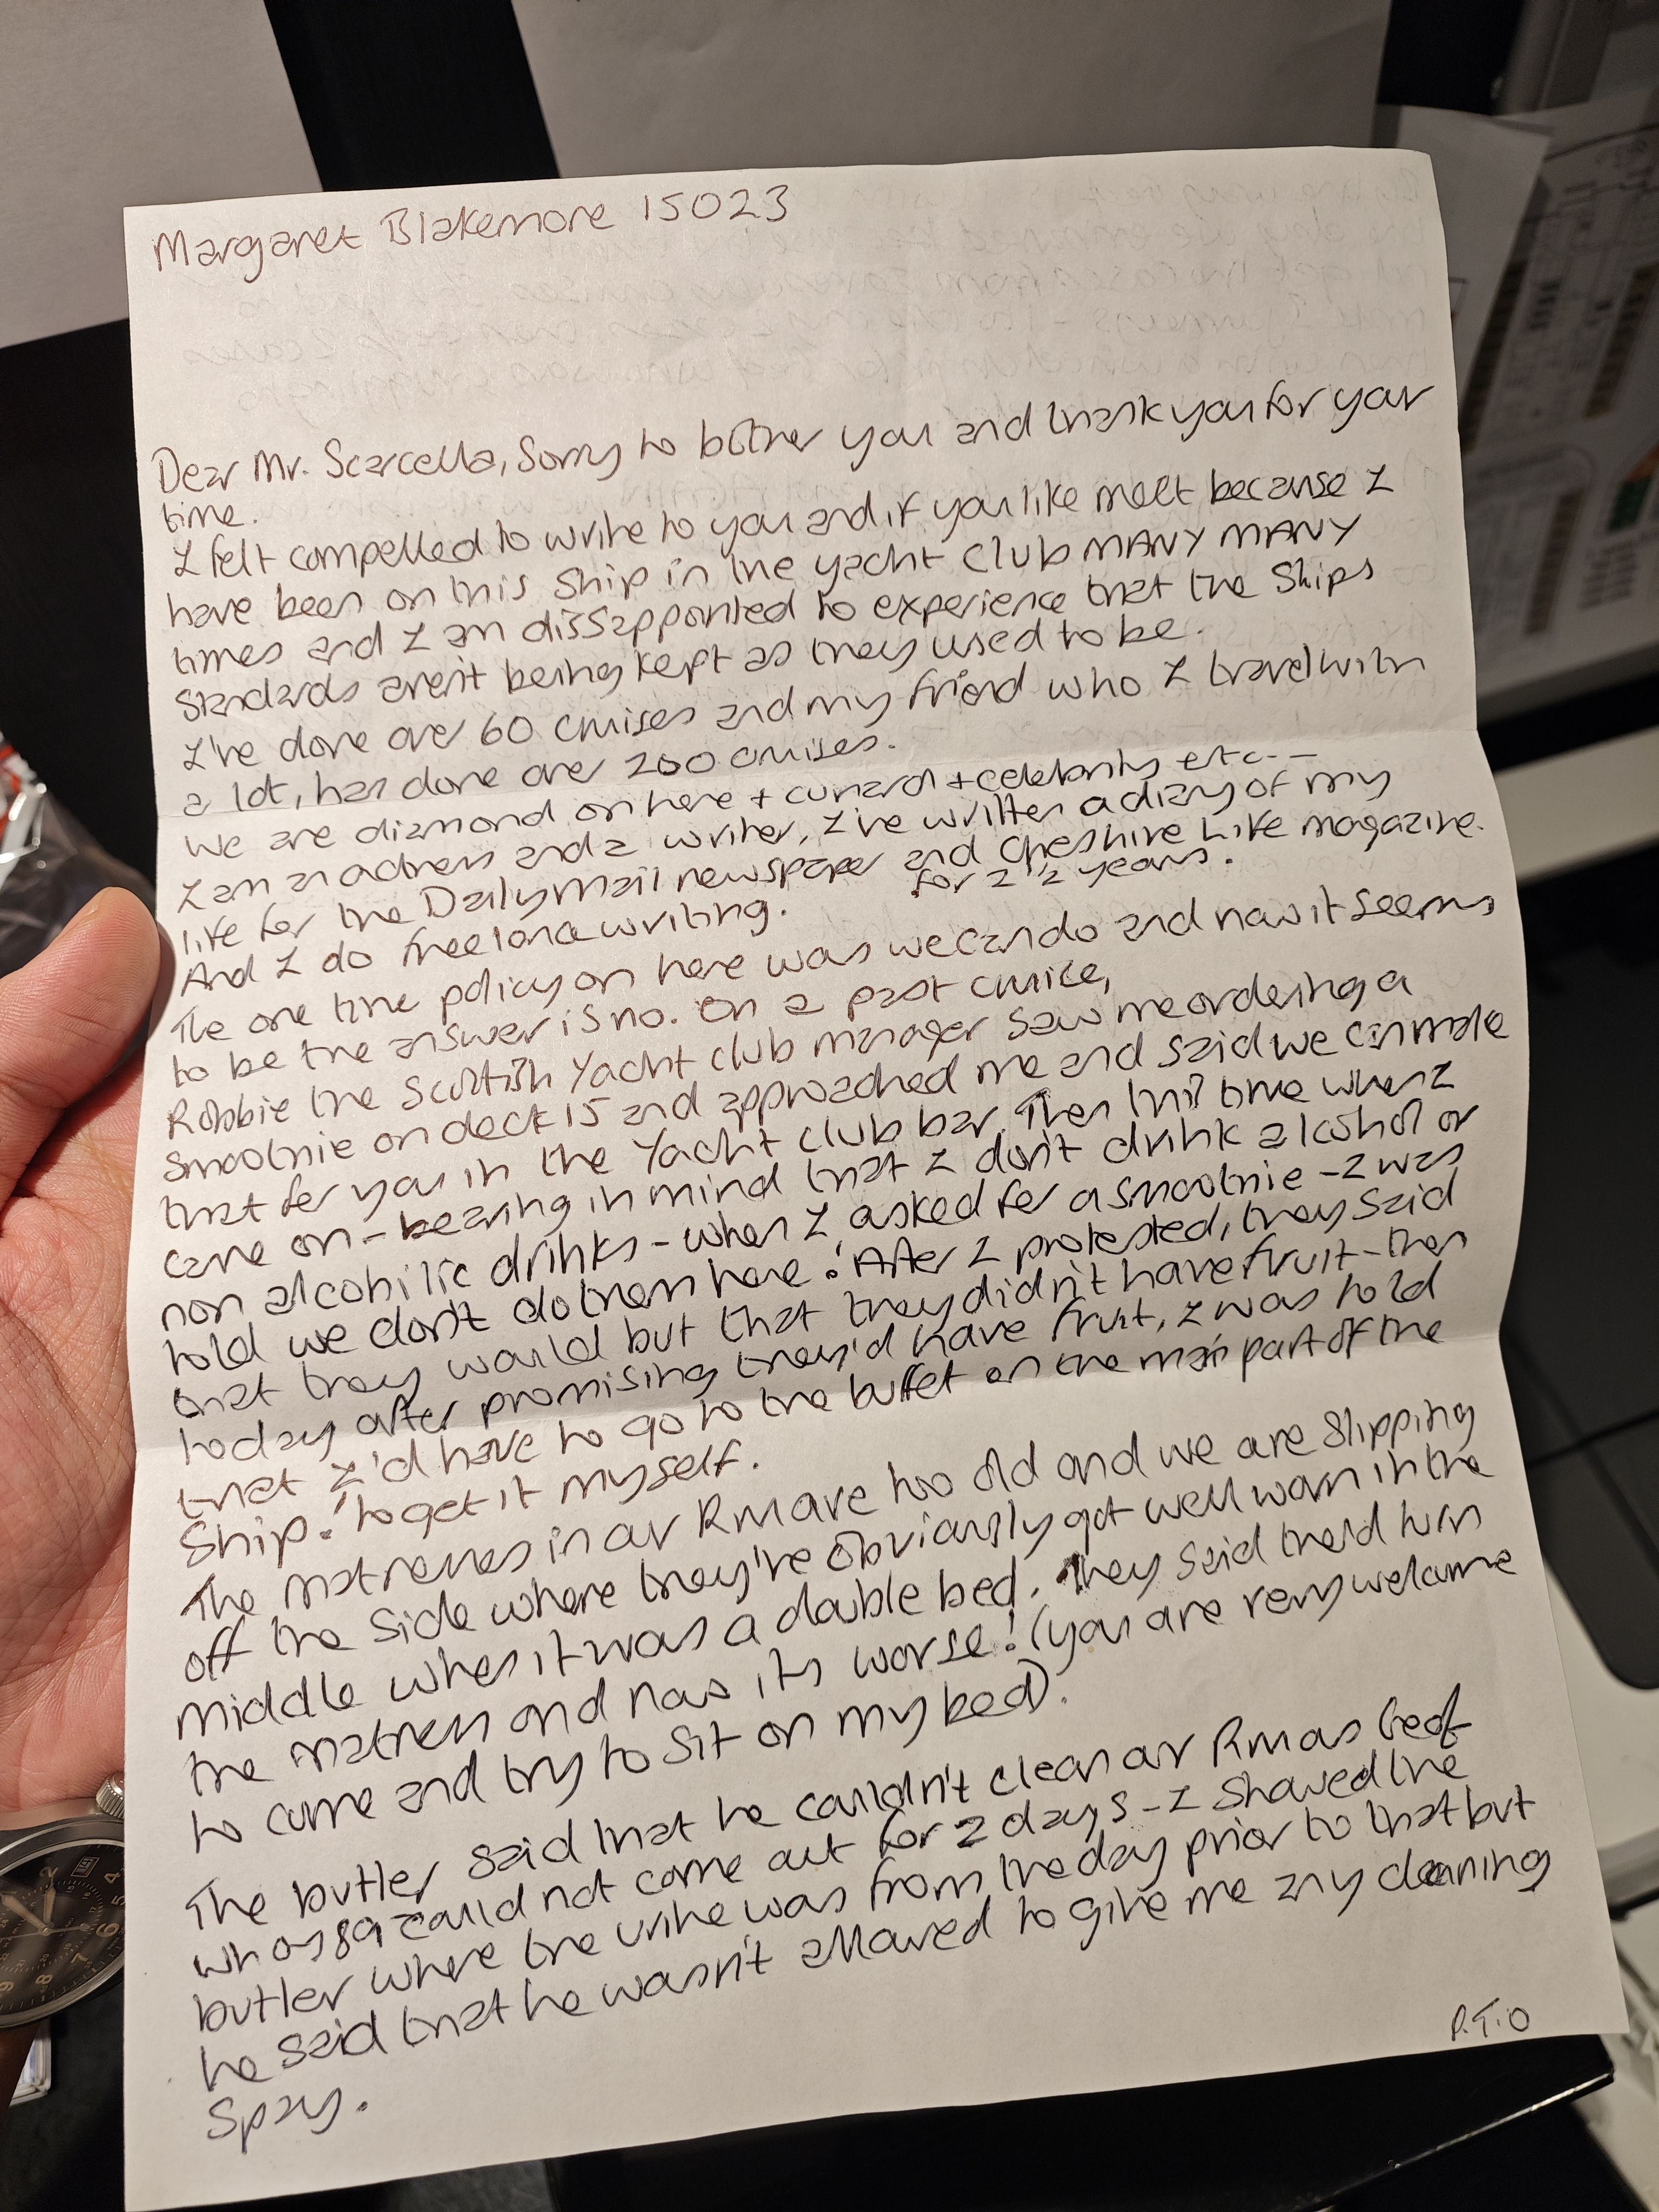 Margaret Blakemore 15023
Dear Mr. Scarcella, Sorry to bother you and thank you for your
time.
I felt compelled to write to you and if you like meet because I
have been on this Ship in the yacht Club MANY MANY
times and I am dissappointed to experience that the Ships
Standards aren't being kept as they used to be.
I've done over 60 cruises and my friend who I travel with
a lot, has done over 200 cruises.
We are diamond on here + cunard + celebrity etc--
I am an actress and a writer, I've written a diary of my
life for the Daily Mail newspaper and Cheshire Life magazine.
for 2 1/2 years.
And I do freelance writing.
The one time policy on here was we can do and now it seems
to be the answer is no. On a past cruise,
Robbie the Scottish Yacht club manager saw me ordering a
smoothie on deck 15 and approached me and said we can make
that for you in the Yacht club bar. Then this time when I
came on - bearing in mind that I don't drink alcohol or
non alcoholic drinks - when I asked for a smoothie - I was
told we don't do them here! After I protested, they said
that they would but that they didn't have fruit - then
today after promising they'd have fruit, I was told
that I'd have to go to the buffet on the main part of the
Ship! to get it myself.
The matresses in our Rm are too old and we are slipping
off the side where they're obviously got well worn in the
middle when it was a double bed. They said they'd turn
the matress and now its worse! (you are very welcome
to come and try to sit on my bed).
The butler said that he couldn't clean our Rm as Geoff
who is 89 could not come out for 2 days - I showed the
butler where the urine was from the day prior to that but
he said that he wasn't allowed to give me any cleaning
Spray.
P.T.O